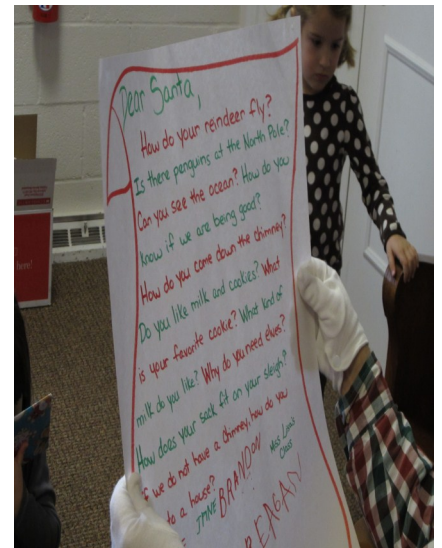 Dear Santa,
How do your reindeer fly?
Is there penguins at the North Pole?
Can you see the ocean? How do you
know if we are being good?
How do you come down the chimney?
Do you like milk and cookies? What
is your favorite cookie? What kind of
milk do you like? Why do you need elves?
How does your sack fit on your sleigh?
if we do not have a chimney, how do you
to a house?
BRANDON
Miss
Class
REAGAN
here!